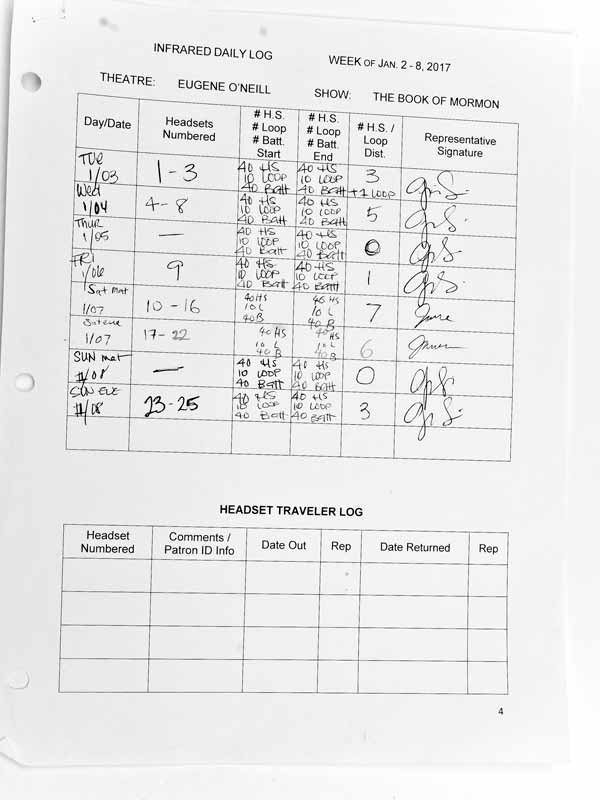 INFRARED DAILY LOG
WEEK OF JAN. 2 - 8, 2017
THEATRE: EUGENE O'NEILL SHOW: THE BOOK OF MORMON
Day/Date
Headsets
Numbered
# H.S.
# Loop
# Batt.
Start
# H.S.
# Loop
# Batt.
End
# H.S. /
Loop
Dist.
Representative
Signature
TUE
1/03
1-3
40 HS
10 LOOP
40 BATT
40 HS
10 LOOP
40 BATT
3
+1 LOOP
Wed
1/04
4-8
40 HS
10 LOOP
40 BATT
40 HS
10 LOOP
40 BATT
5
Thur
1/05
—
40 HS
10 LOOP
40 BATT
40 HS
10 LOOP
40 BATT
0
FRI
1/06
9
40 HS
10 LOOP
40 BATT
40 HS
10 LOOP
40 BATT
1
Sat mat
1/07
10-16
40 HS
10 L
40 B
40 HS
10 L
40 B
7
Sat eve
1/07
17-22
40 HS
10 L
40 B
40 HS
10 L
40 B
6
SUN mat
1/08
—
40 HS
10 LOOP
40 BATT
40 HS
10 LOOP
40 BATT
0
SUN EVE
1/08
23-25
40 HS
10 LOOP
40 BATT
40 HS
10 LOOP
40 BATT
3
HEADSET TRAVELER LOG
Headset
Numbered
Comments /
Patron ID Info
Date Out
Rep
Date Returned
Rep
4